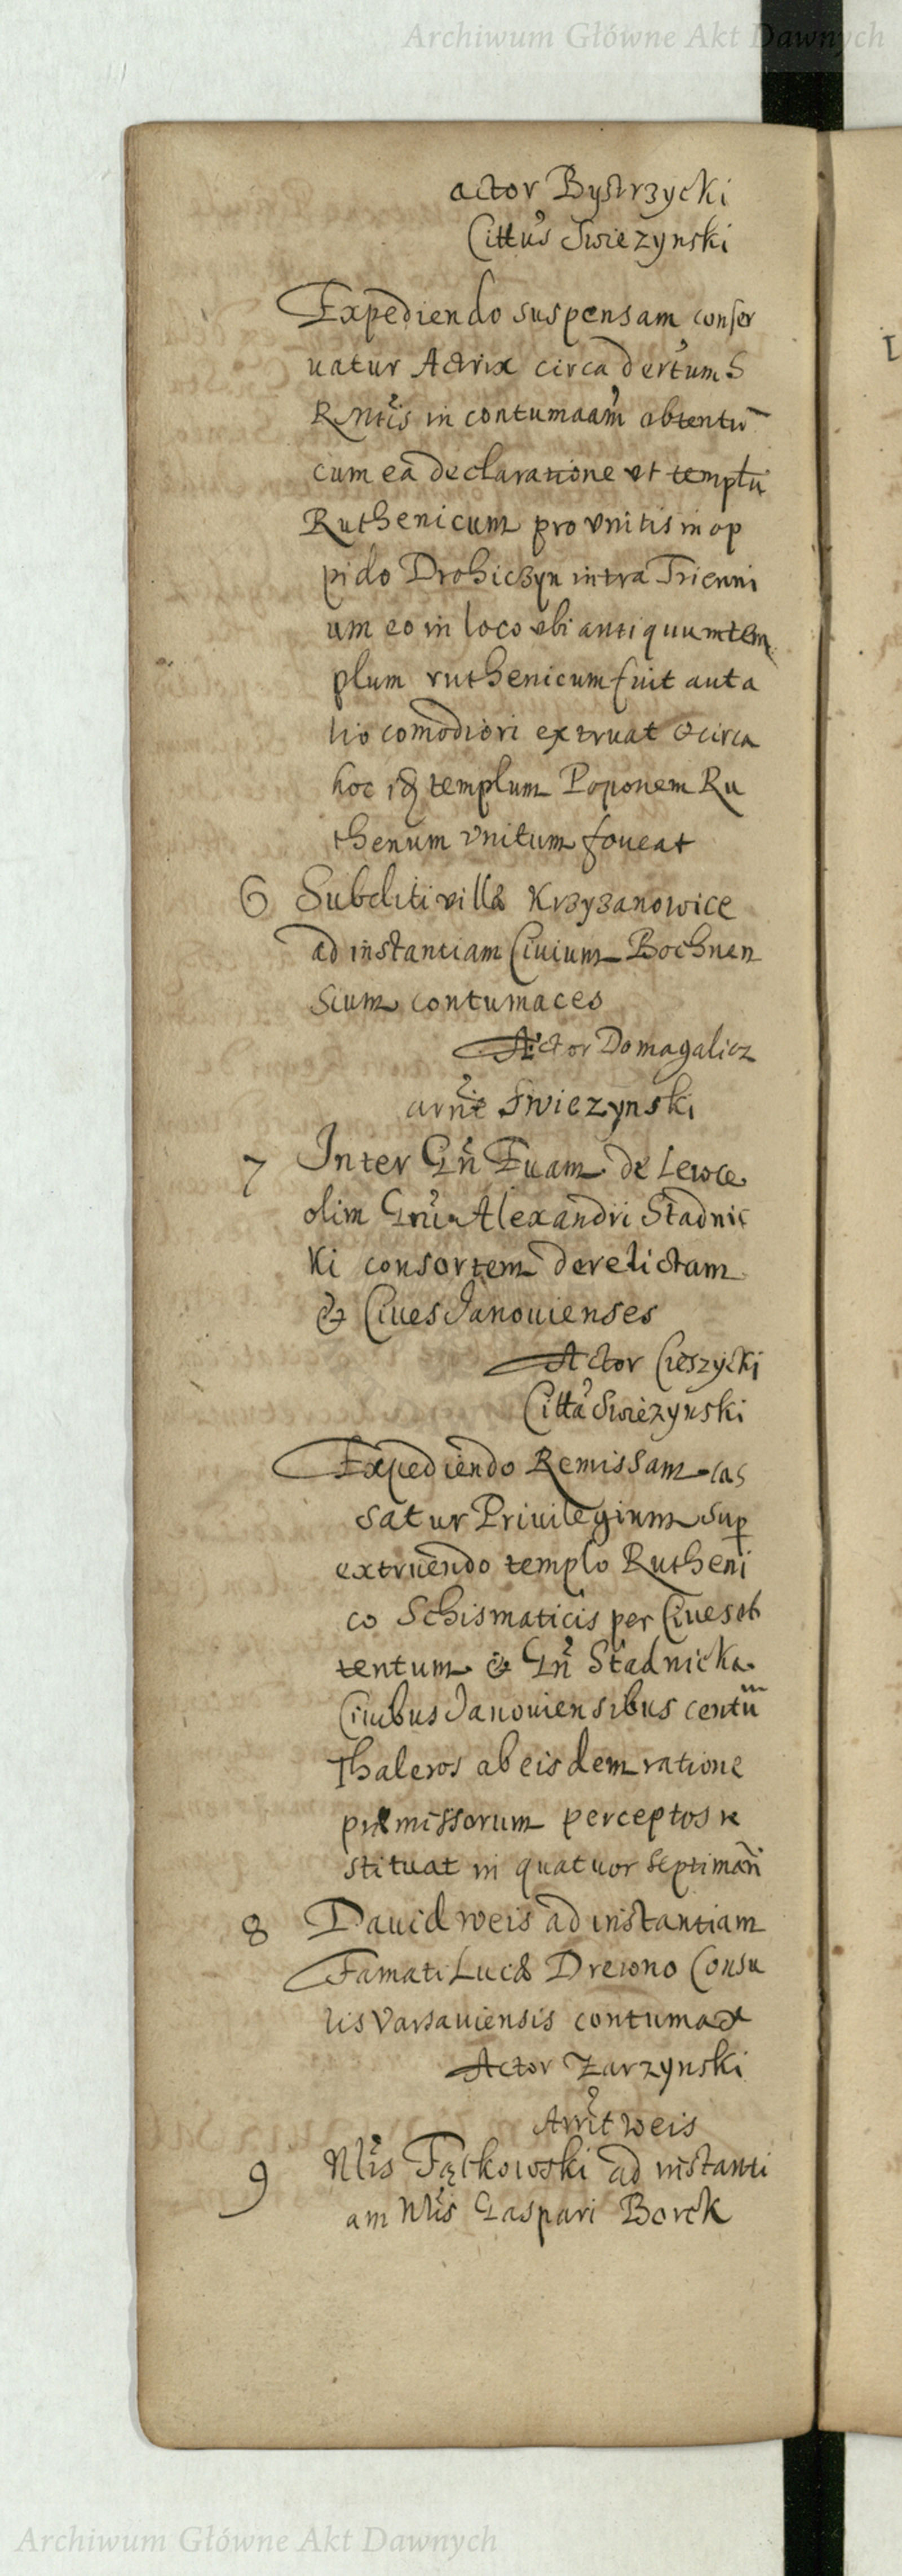 Archiwum Główne Akt Dawnych
actor Bystrzycki
Cittus Swiezynski
Expediendo suspensam conser
uatur Actrix circa decretum S
R Mtis in contumaciam obtentū
cum ea declaratione vt templū
Ruthenicum pro vnitis in op
pido Drohiczyn intra Trienni
um eo in loco vbi antiquum tem
plum ruthenicum fuit aut a
lio comodiori extruat & circa
hoc templum Poponem Ru
thenum vnitum foueat
6 Subditi villæ Krzyzanowice
ad instantiam Ciuium Bochnen
sium contumaces
Actor Domagalicz
Swiezynski
7 Inter Gn Euam de Lewce
olim Gni Alexandri Stadnic
ki consortem derelictam
& Ciues Janouienses
Actor Cieszycki
Citta Swiezynski
Expediendo Remissam cas
satur Priuilegium sup
extruendo templo Rutheni
co Schismaticis per Ciues ob
tentum & Gn Stadnicka
Ciuibus Janouiensibus centū
Thaleros ab eisdem ratione
præmissorum perceptos re
stituat in quatuor septiman
8 Dauid weis ad instantiam
Famati Lucæ Drewno Consu
lis Varsauiensis contumax
Actor Zarzynski
weis
9 Nlis ad instanti
am Nlis Gaspari Borck
Archiwum Główne Akt Dawnych